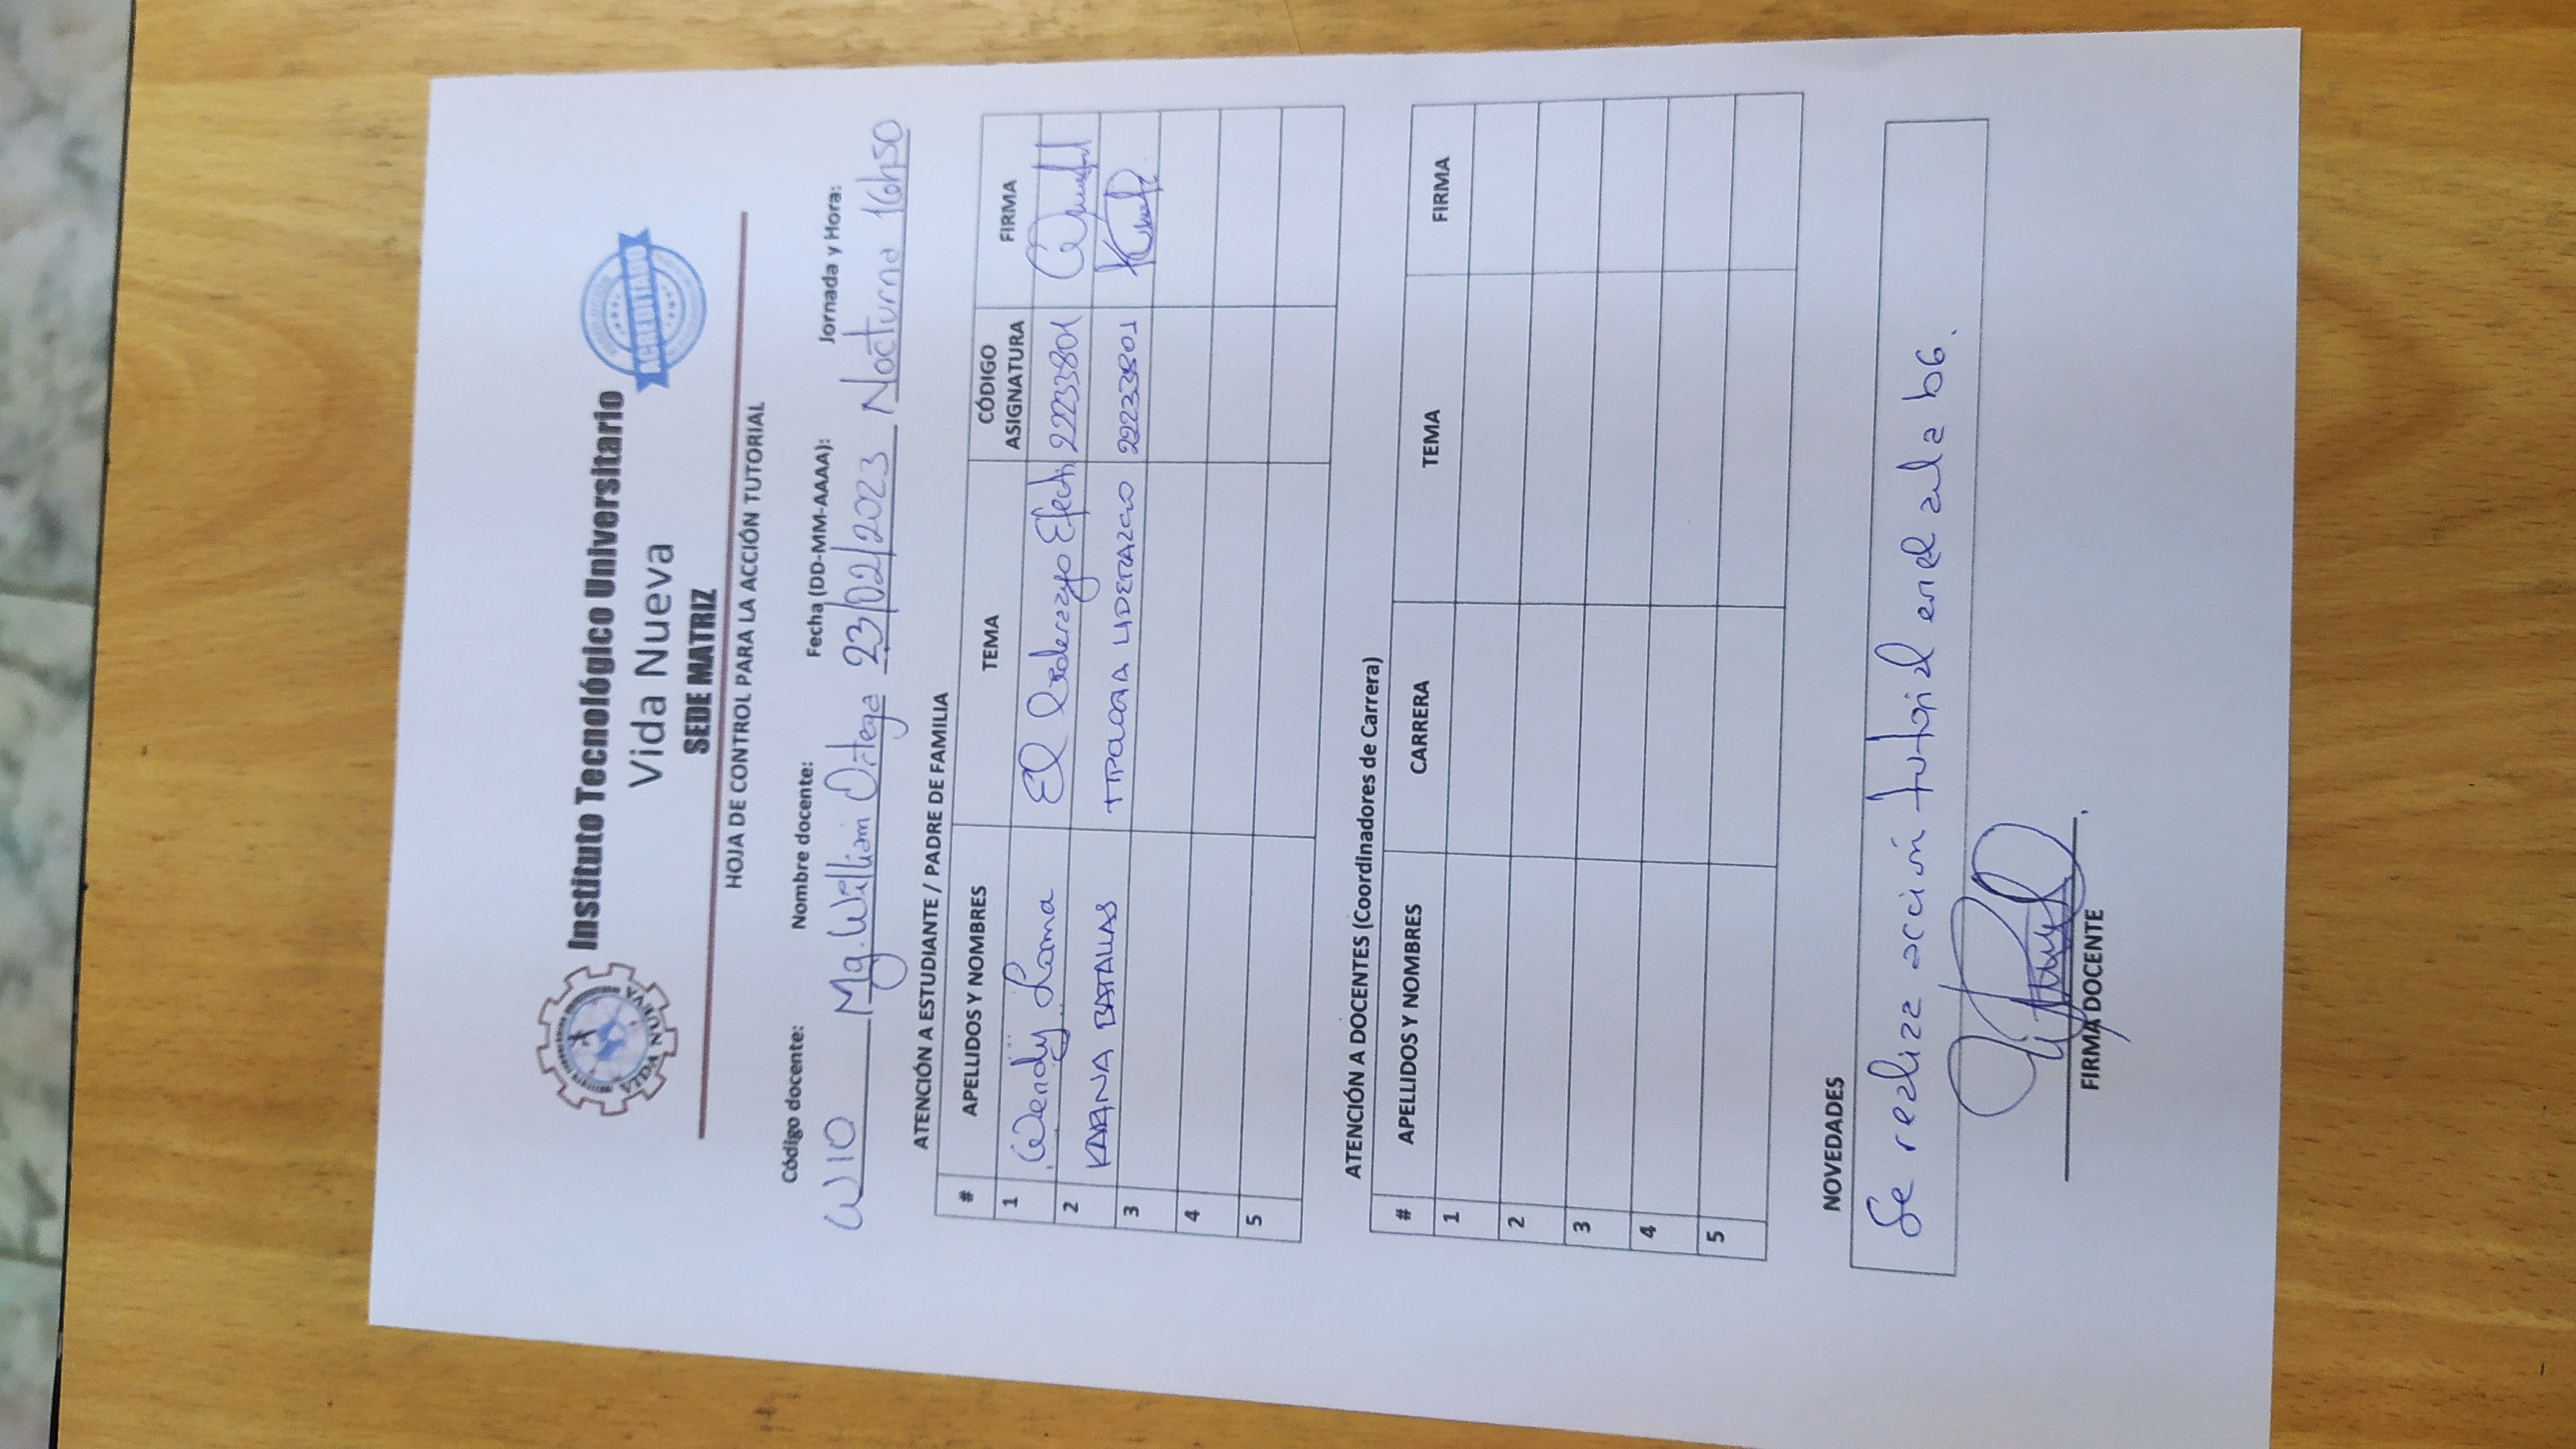 Instituto Tecnológico Universitario
Vida Nueva
VIDA NUEVA
ACREDITADO
SEDE MATRIZ
HOJA DE CONTROL PARA LA ACCIÓN TUTORIAL
Código docente: Nombre docente: Fecha (DD-MM-AAAA): Jornada y Hora:
W10 Mg. William Ortega 23/02/2023 Nocturna 16h50
ATENCIÓN A ESTUDIANTE / PADRE DE FAMILIA
# APELLIDOS Y NOMBRES TEMA CÓDIGO ASIGNATURA FIRMA
1 Wendy Loma El liderazgo Efecti 22233801
2 KARINA BATALLAS TIPOLOGIA LIDERAZGO 22233801
3
4
5
ATENCIÓN A DOCENTES (Coordinadores de Carrera)
# APELLIDOS Y NOMBRES CARRERA TEMA FIRMA
1
2
3
4
5
NOVEDADES
Se realiza acción tutorial en el aula b6.
FIRMA DOCENTE